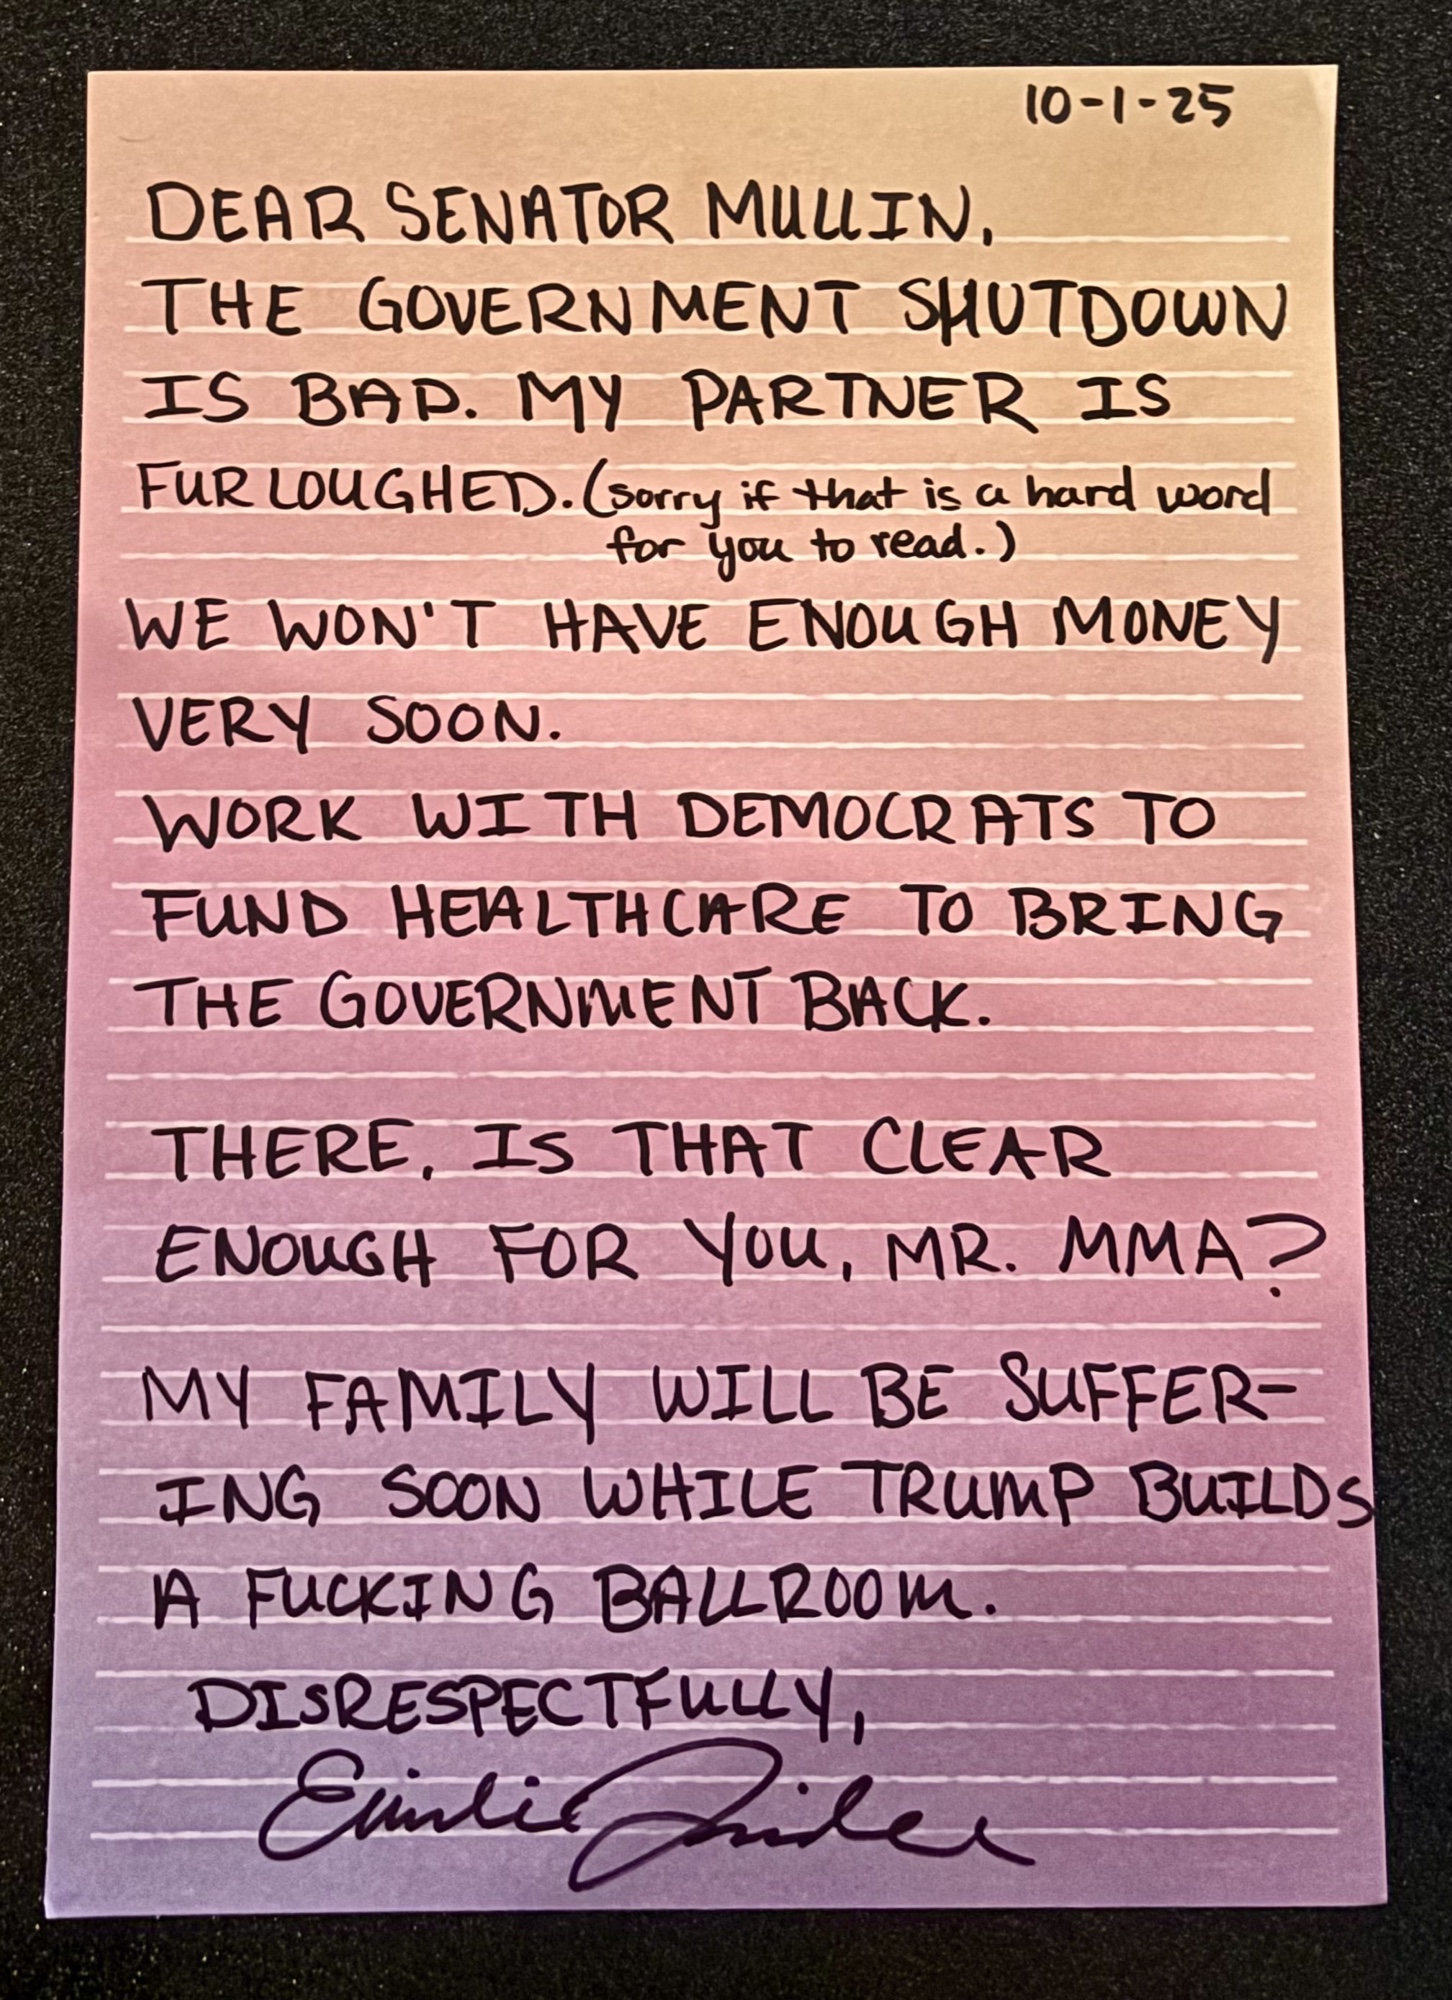 10-1-25
DEAR SENATOR MULLIN,
THE GOVERNMENT SHUTDOWN
IS BAD. MY PARTNER IS
FURLOUGHED. (sorry if that is a hard word
for you to read.)
WE WON'T HAVE ENOUGH MONEY
VERY SOON.
WORK WITH DEMOCRATS TO
FUND HEALTHCARE TO BRING
THE GOVERNMENT BACK.
THERE, IS THAT CLEAR
ENOUGH FOR YOU, MR. MMA?
MY FAMILY WILL BE SUFFER-
ING SOON WHILE TRUMP BUILDS
A FUCKING BALLROOM.
DISRESPECTFULLY,